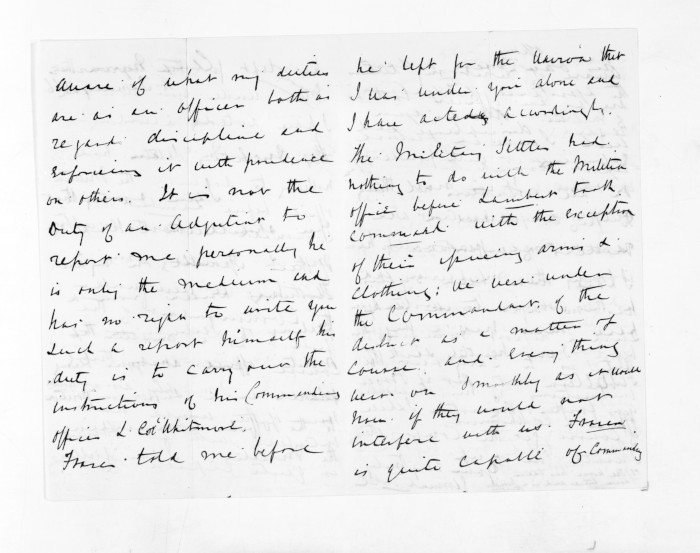 aware of what my duties
are as an officer both as
regard discipline and
enforcing it with prudence
on others. It is not the
Duty of an Adjutant to
report me personally he
is only the medium and
has no right to write you
such a report himself his
duty is to carry out the
instructions of his Commanding
officer L Col Whitmore.
Fraser told me before
he left for the Wairoa that
I was under you alone and
I have acted accordingly.
The Military Settlers had
nothing to do with the Militia
office before Lambert took
Command with the exception
of their issuing arms &
Clothing; We were under
the Commandant of the
district as a matter of
Course and every thing
went on smoothly as it would
now if they would not
interfere with us. Fraser
is quite capable of Commanding